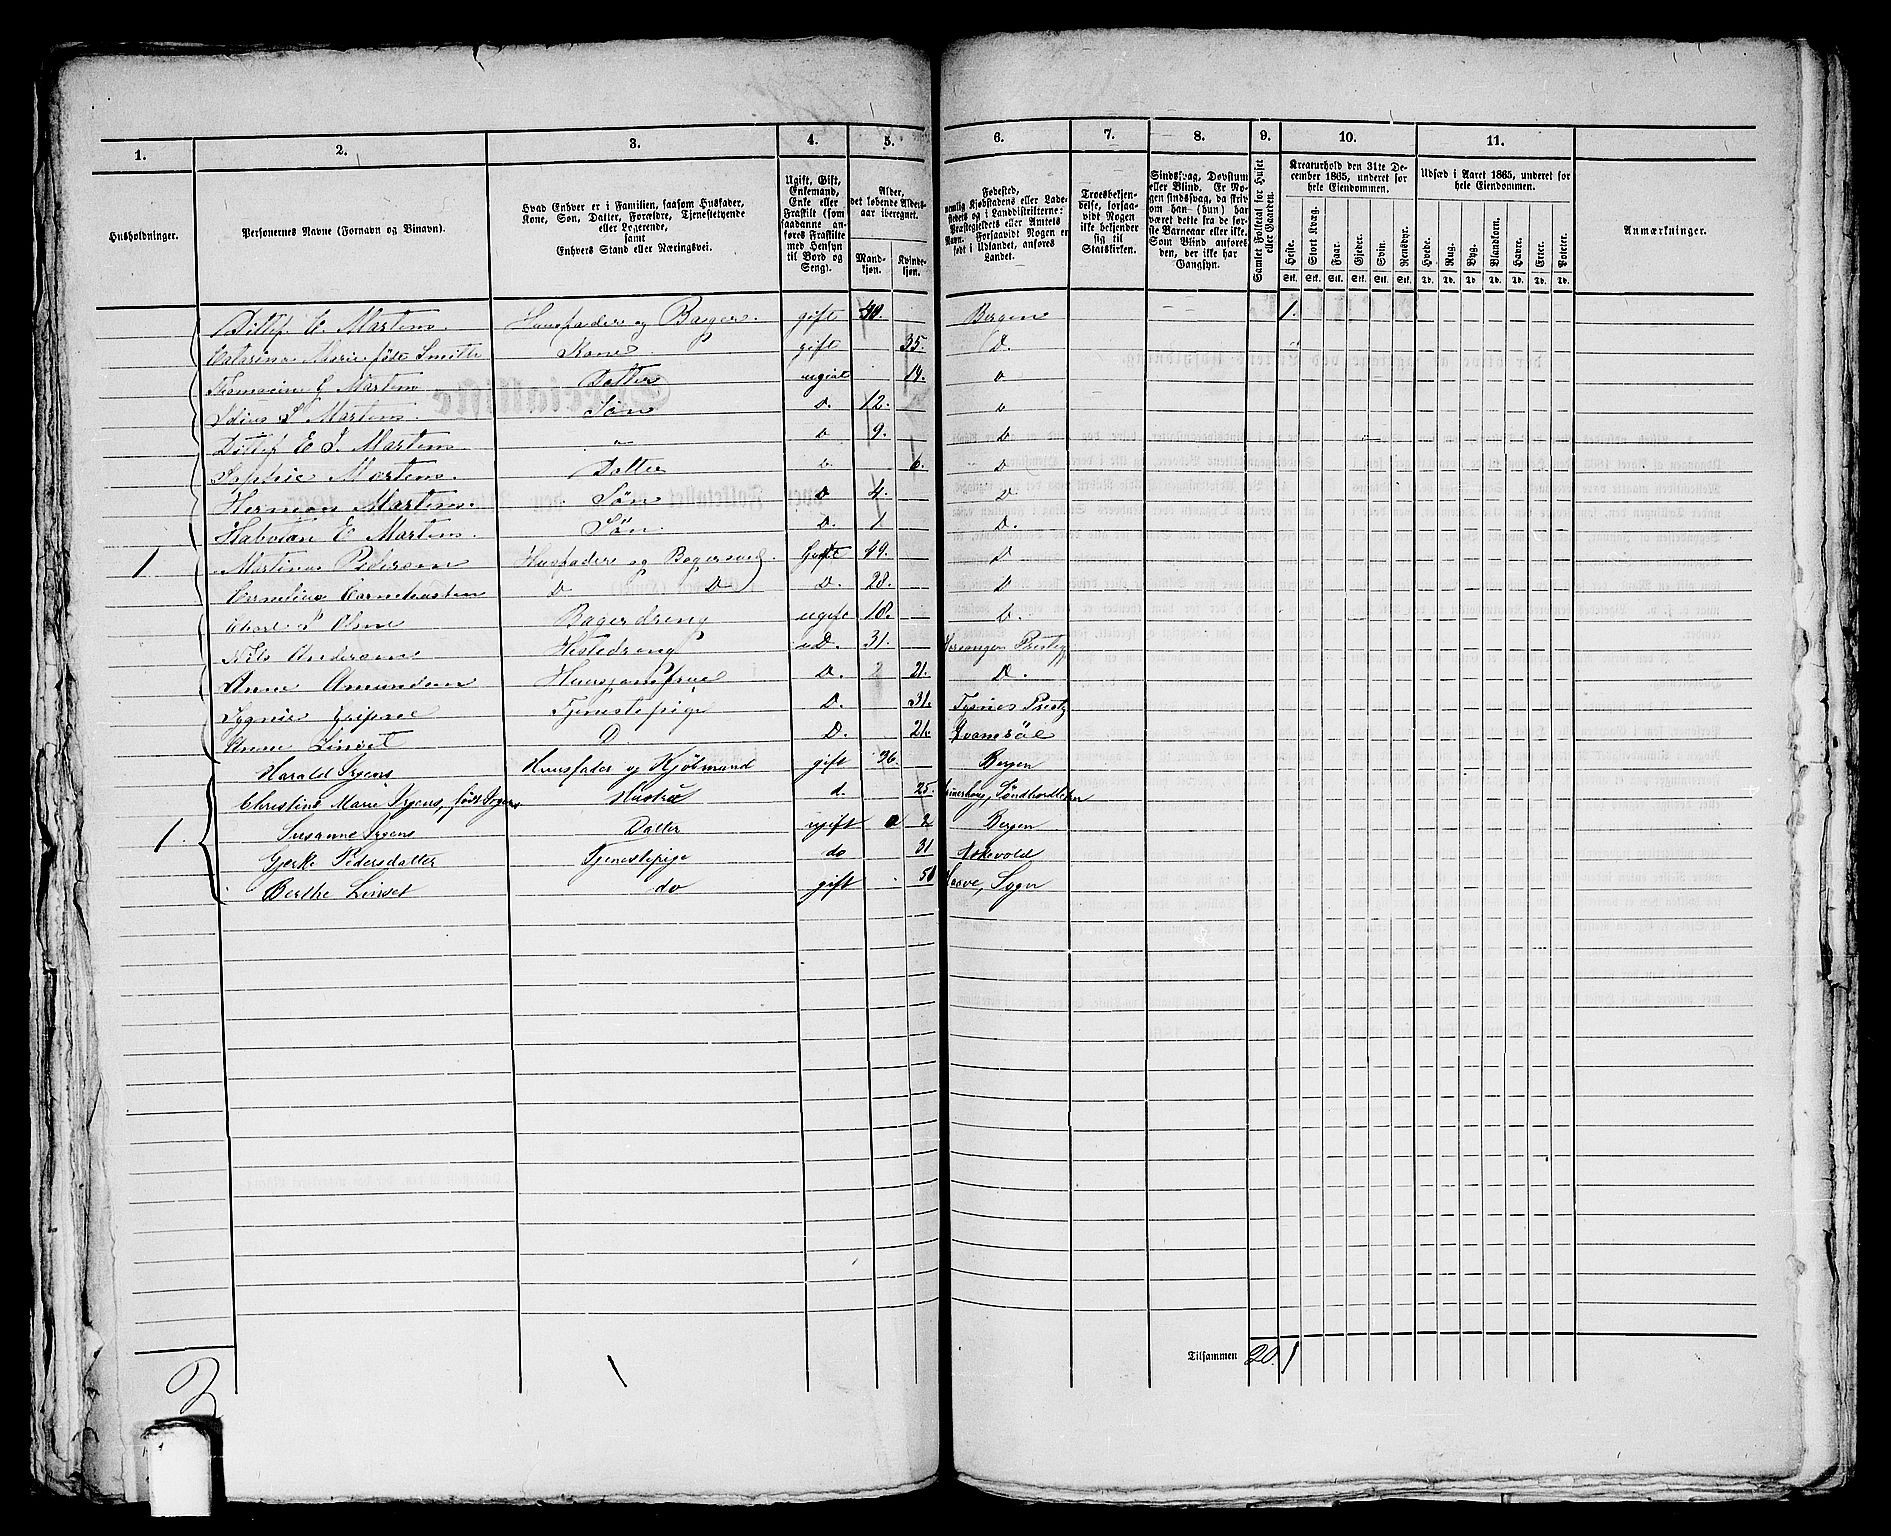 1. 2. 3. 4. 5. 6. 7. 8. 9. 10. 11.
Husholdninger.
Personernes Navne (Fornavn og Binavn).
Hvad Enhver er i Familien, saasom Husfader,
Kone, Søn, Datter, Forældre, Tjenestetyende
eller Logerende,
samt
Enhvers Stand eller Næringsvei.
Ugift, Gift,
Enkemand,
Enke eller
Fraskilt (som
saadanne an-
føres Fraskilte
med Hensyn
til Bord og
Seng).
Alder,
det løbende Alders-
aar iberegnet.
Mand-
kjøn.
Kvinde-
kjøn.
Fødested,
nemlig Kjøbstadens eller Lade-
stedets og i Landdistrikterne:
Præstegjeldets eller Amtets
Navn. Forsaavidt Nogen er
født i Udlandet, anføres
Landet.
Troesbekjen-
delse, forsaa-
vidt Nogen
ikke bekjender
sig til
Statskirken.
Sindssvag, Døvstum
eller Blind. Er No-
gen sindssvag, da skriv
om han (hun) har
været dette fra de før-
ste Barneaar eller ikke.
Som Blind anføres
den, der ikke har
Gangsyn.
Samlet Folketal for Huset
eller Gaarden.
Kreaturhold den 31te De-
cember 1865, underet for
hele Eiendommen.
Heste. Stort Kvæg. Faar. Gjeder. Svin. Rensdyr.
Stk. Stk. Stk. Stk. Stk. Stk.
Udsæd i Aaret 1865, underet for
hele Eiendommen.
Hvede. Rug. Byg. Blandkorn. Havre. Erter. Poteter.
Td. Td. Td. Td. Td. Td. Td.
Anmærkninger.
Ditlef E Martens Huusfader og Bager. gift 40. Bergen 1.
Catarina Marie født Smith Kone gift 35. D.
G Martens Datter ugivt 14. D
S Martens Søn D. 12. D
Ditlef E J. Martens " D 9. D
Sophie Martens. Datter D 6. D
Herman Martens. Søn D 4. D
E Martens. Søn. D. 1 D.
1 Martinus Pedersen Huusfader og Bagersvend. Gift 49. D
Cornelius Corneliusten D D D. 28. D
S Olsen Bagerdreng ugift 18. D.
Nils Andersen Hestedreng D. 31. Prestg
Anne Amundsen Huusjomfrue D. 21. D.
Tjenestepige D. 31. Tysnes Prestg
Anne Linset D. D. 21. Qvamsöe
Harald Irgens Huusfader og Kjöbmand gift 36. Bergen
Christine Marie Irgens, født Hustru d. 25. Söndhordlehn
1. Susanne Irgens Datter ugift 2 Bergen
Gjerke Pedersdatter Tjenestepige do 31 Askevold
Berthe Linset do gift 50 Sogn
Tilsammen 20. 1
2